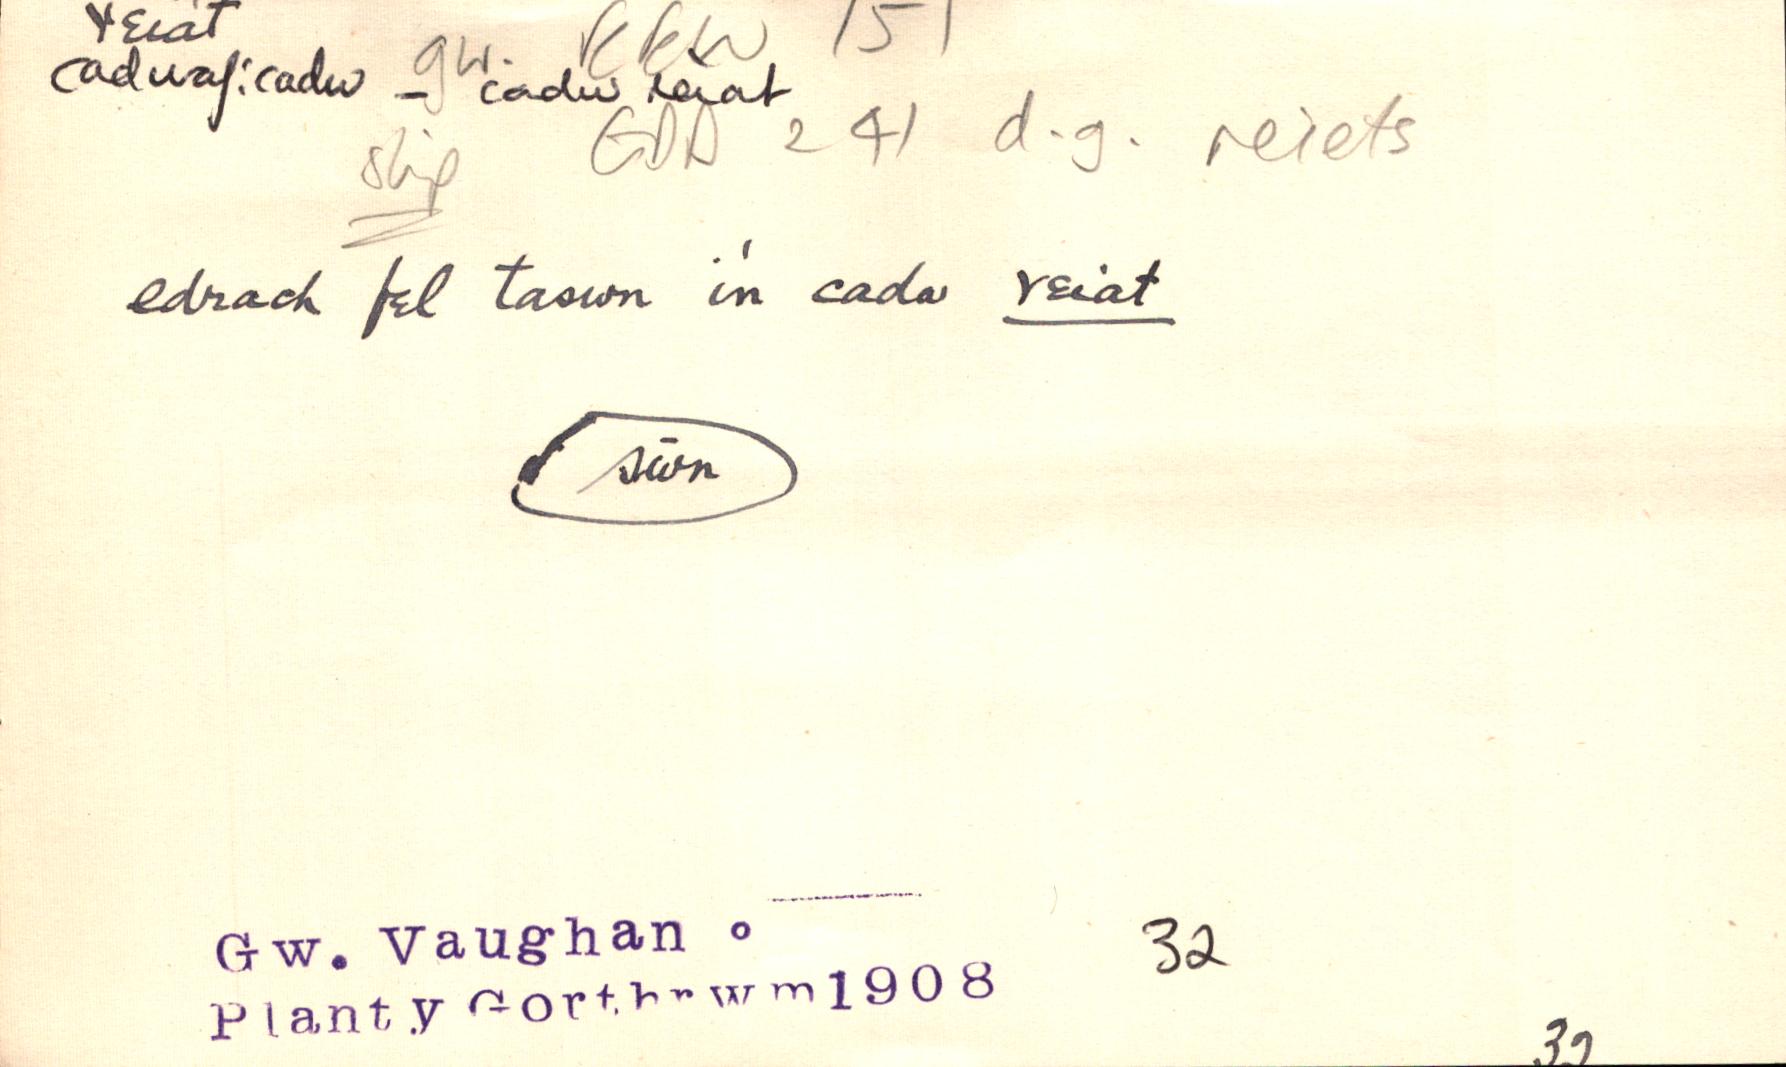 reiat
cadwaf: cadw – cadw reiat
gw. 151
slip GDD 241 d.g. reiets
edrach fel taswn i'n cadw reiat
sŵn
Gw. Vaughan
Plant y Gorthrwm 1908
32
32